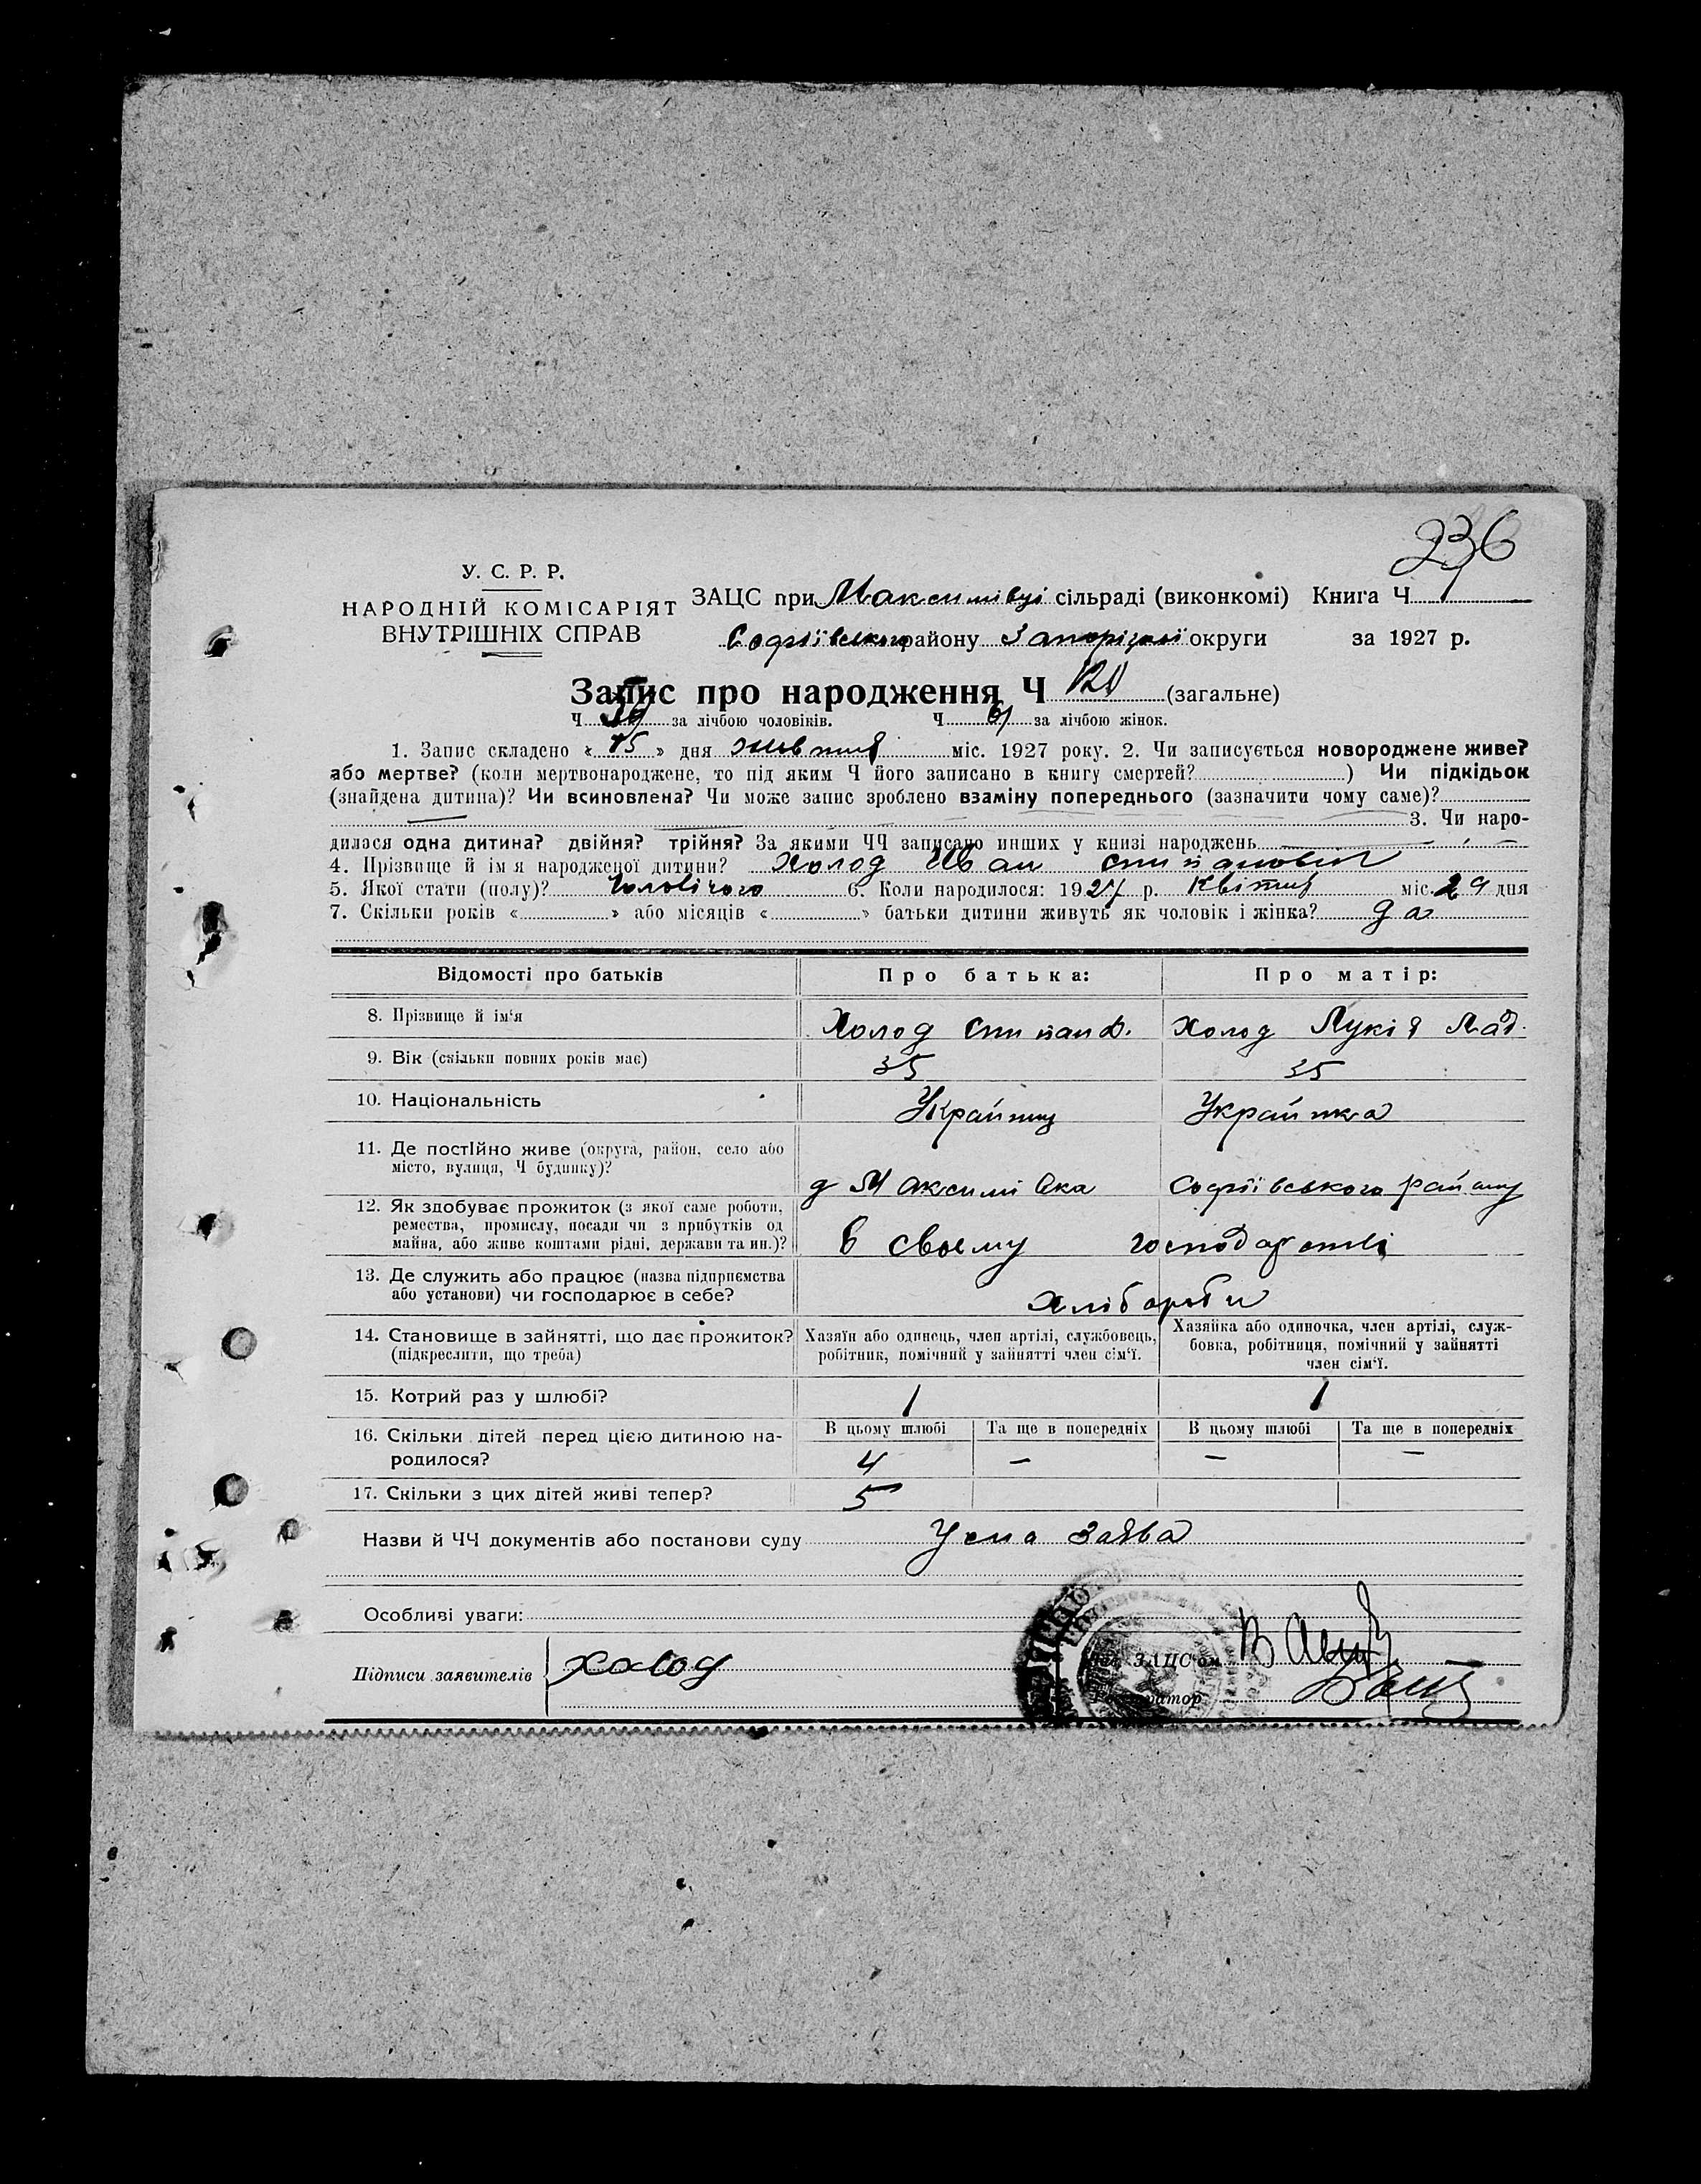 236
У. С. Р. Р.
НАРОДНІЙ КОМІСАРІЯТ
ВНУТРІШНІХ СПРАВ
ЗАЦС при Максимівці сільраді (виконкомі) Книга Ч 1
Софіївського району Запорізької округи за 1927 р.
Запис про народження Ч 120 (загальне)
Ч 59 за лічбою чоловіків. Ч 61 за лічбою жінок.
1. Запис складено « 15 » дня Жовтня міс. 1927 року. 2. Чи записується новороджене живе?
або мертве? (коли мертвонароджене, то під яким Ч його записано в книгу смертей? ) Чи підкідьок
(знайдена дитина)? Чи всиновлена? Чи може запис зроблено взаміну попереднього (зазначити чому саме)?
3. Чи наро-
дилося одна дитина? двійня? трійня? За якими ЧЧ записано инших у книзі народжень
4. Прізвище й ім я народженої дитини? Холод Іван
5. Якої стати (полу)? Чоловічого 6. Коли народилося: 1927 р. Квітня міс. 29 дня
7. Скільки років « » або місяців « » батьки дитини живуть як чоловік і жінка? да
Відомості про батьків Про батька: Про матір:
8. Прізвище й ім‘я Холод Степан Холод Лукія
9. Вік (скільки повних років має) 35 35
10. Національність Українц Українка
11. Де постійно живе (округа, район, село або
місто, вулиця, Ч будинку)?
д Максимівка Софіївського району
12. Як здобуває прожиток (з якої саме роботи,
ремества, промислу, посади чи з прибутків од
майна, або живе коштами рідні, держави та ин.)?
в своему господарстві
13. Де служить або працює (назва підприємства
або установи) чи господарює в себе?
Хлібороби
14. Становище в зайнятті, що дає прожиток?
(підкреслити, що треба)
Хазяїн або одинець, член артілі, службовець,
робітник, помічний у зайнятті член сім‘ї.
Хазяйка або одиночка, член артілі, служ-
бовка, робітниця, помічний у зайнятті
член сім‘ї.
15. Котрий раз у шлюбі? 1 1
16. Скільки дітей перед цією дитиною на-
родилося?
В цьому шлюбі Та ще в попередніх В цьому шлюбі Та ще в попередніх
4 – – –
17. Скільки з цих дітей живі тепер? 5
Назви й ЧЧ документів або постанови суду Усна заява
Особливі уваги:
Підписи заявителів Холод
Зав. ЗАЦС'ом
Реєстратор